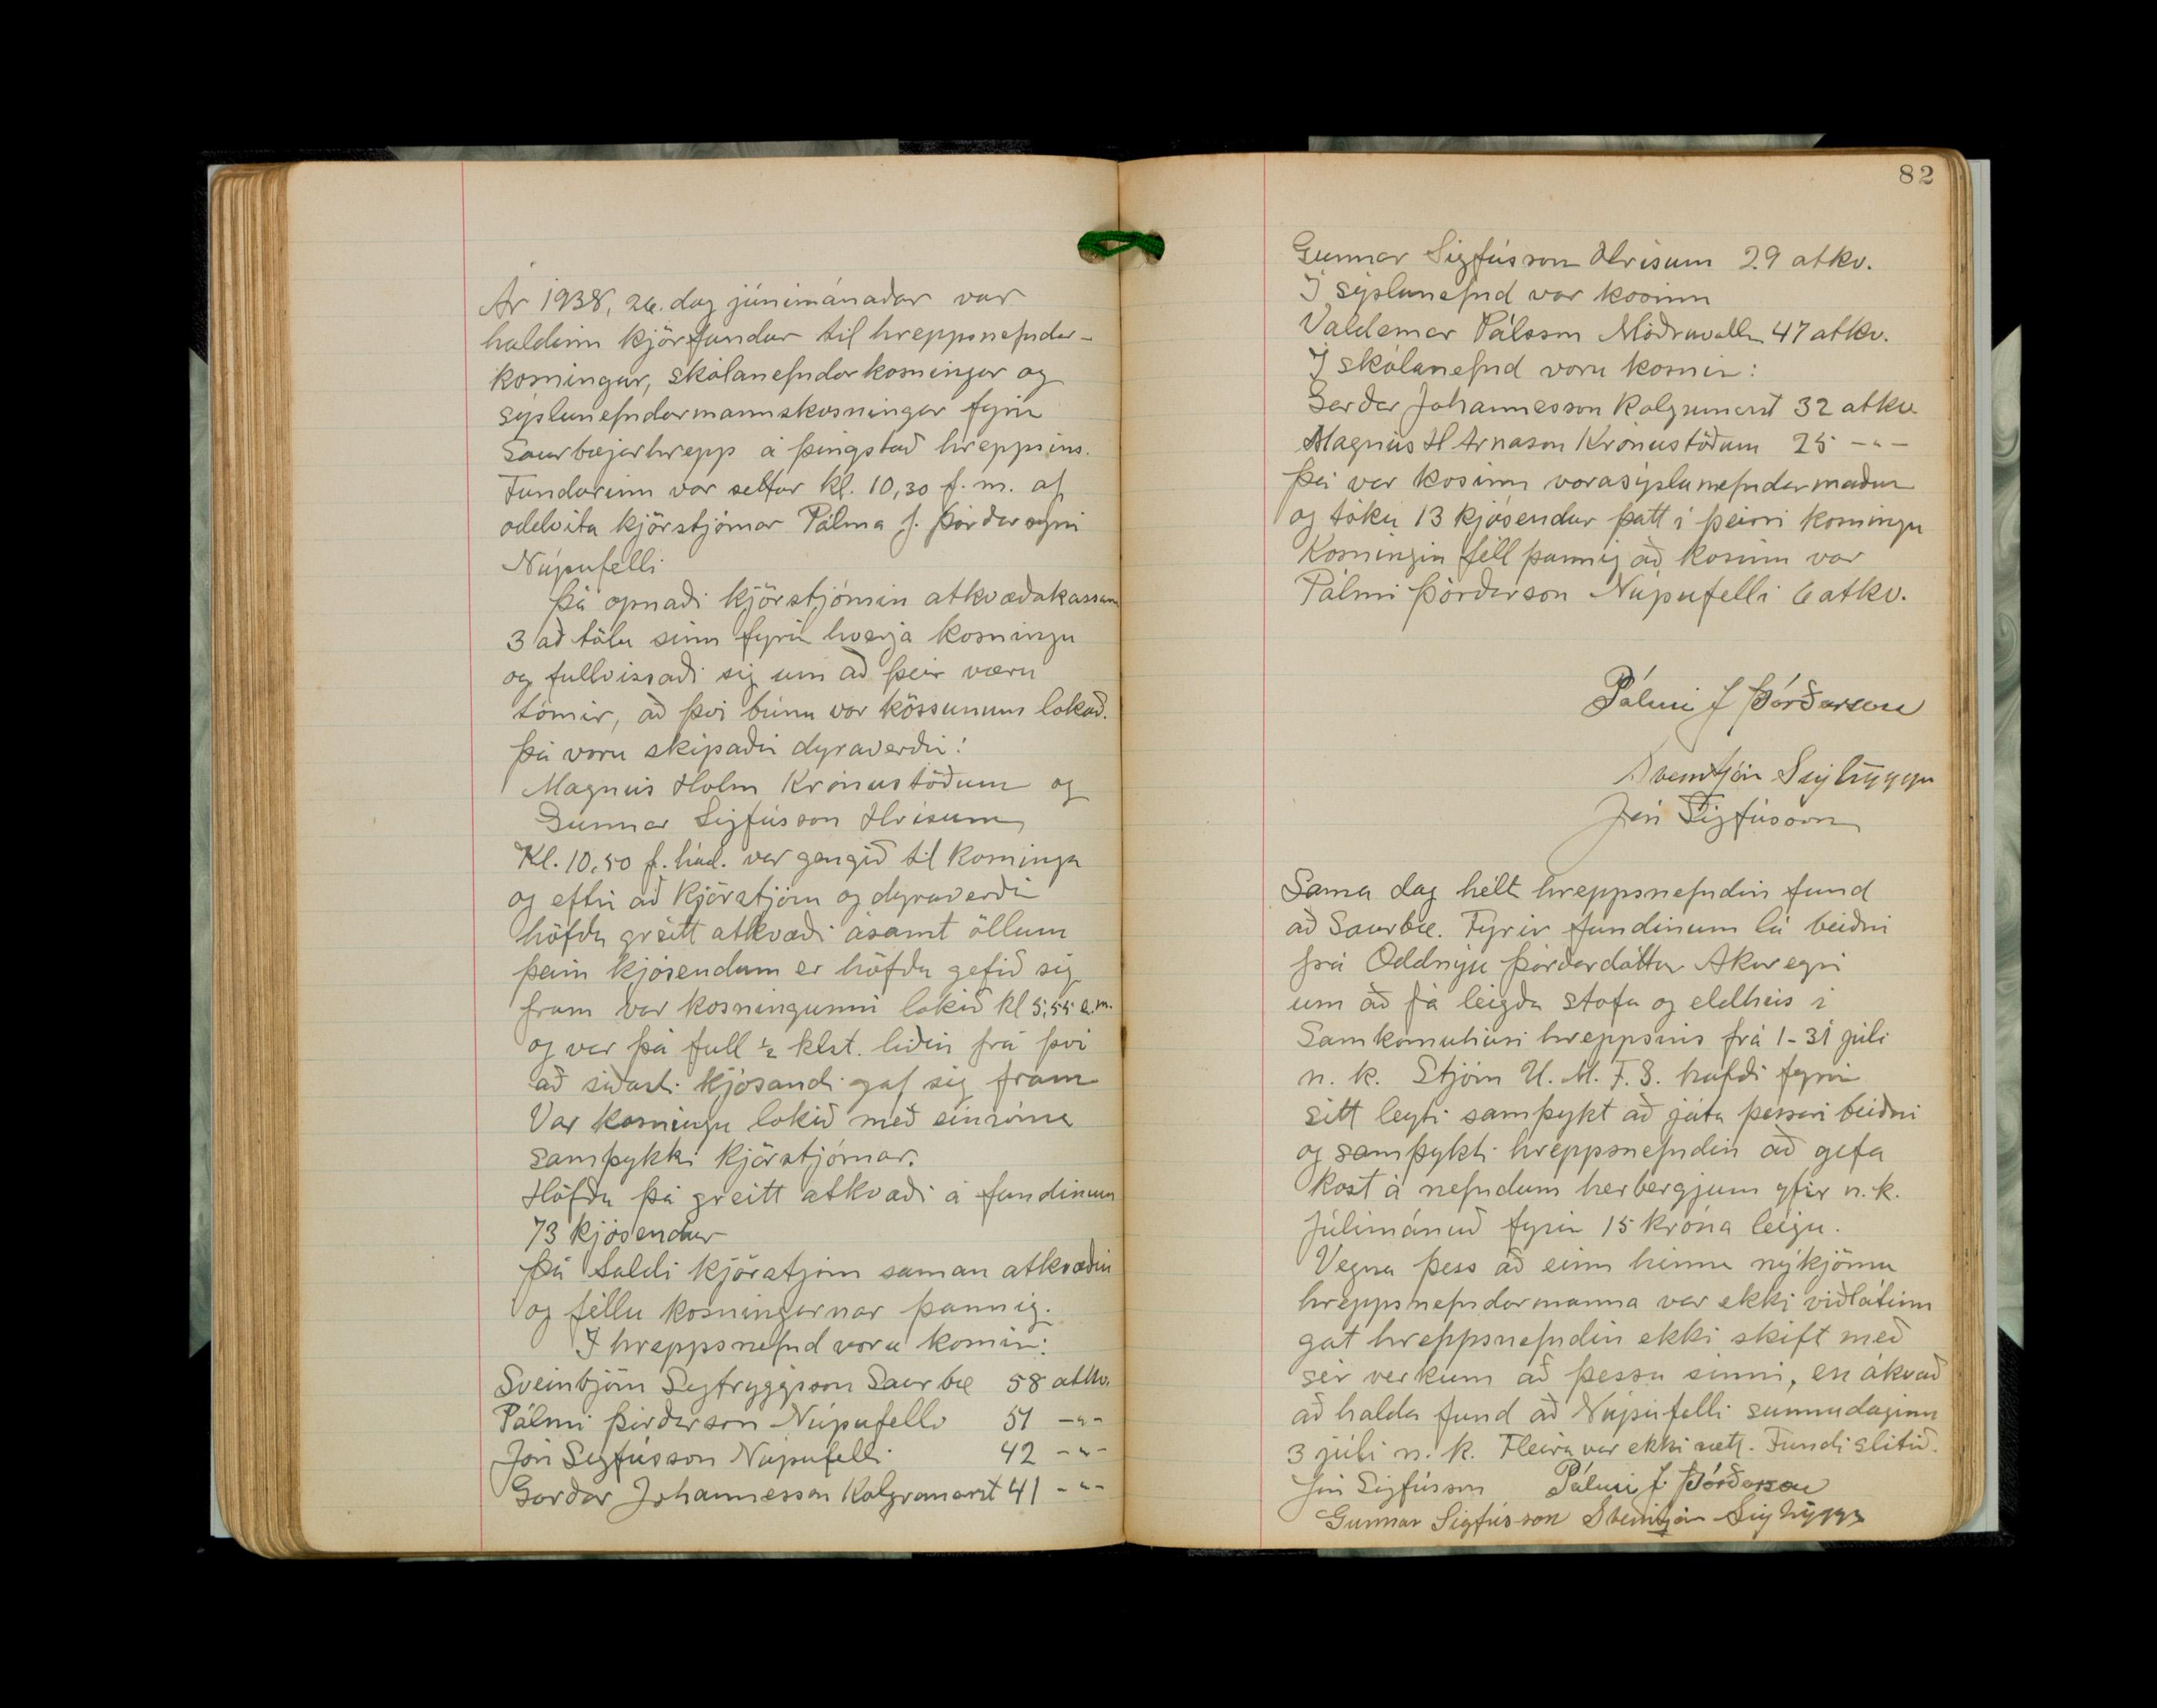 Ár 1938, 26. dag júnímánaðar var
haldinn kjörfundur til hreppsnefndar-
kosningar, skólanefndarkosningar og
sýslunefndarmannskosningar fyrir
Saurbæjarhrepp á þingstað hreppsins.
Fundurinn var settur kl. 10,30 f.m. af
oddvita kjörstjórnar Pálma J. Þórðarsyni
Núpufelli
Þá opnaði kjörstjórnin atkvæðakassana
3 að tölu sinn fyrir hverja kosningu
og fullvissaði sig um að þeir væru
tómir, að því búnu var kössunum lokað.
Þá voru skipaðir dyraverðir:
Magnús Hólm Krónustöðum og
Gunnar Sigfússon Hrísum
Kl. 10,50 f. hád. var gengið til kosninga
og eftir að kjörstjórn og dyraverðir
höfðu greitt atkvæði ásamt öllum
þeim kjósendum er höfðu gefið sig
fram var kosningunni lokið kl 5,55 e.m.
og var þá full ½ klst. liðin frá því
að síðasti kjósandi gaf sig fram
Var kosningu lokið með einróma
samþykki kjörstjórnar.
Höfðu þá greitt atkvæði á fundinum
73 kjósendur
Þá taldi kjörstjórn saman atkvæðin
og féllu kosningarnar þannig.
Í hreppsnefnd voru kosnir:
Sveinbjörn Sigtryggsson Saurbæ 58 atkv.
Pálmi Þórðarson Núpufelli 51 -"-
Jón Sigfússon Núpufelli 42 -"-
Garðar Jóhannesson Kolgrímast 41 -"-
82
Gunnar Sigfússon Hrísum 29 atkv.
Í sýslunefnd var kosinn
Valdemar Pálsson Möðruvöllum 47 atkv.
Í skólanefnd voru kosnir:
Garðar Jóhannesson Kolgrímast 32 atkv
Magnús H Árnason Krónustöðum 25 -"-
Þá var kosinn varasýslunefndarmaður
og tóku 13 kjósendur þátt í þeirri kosningu
Kosningin féll þannig að kosinn var
Pálmi Þórðarson Núpufelli 6 atkv.
Pálmi J Þórðarson
Sveinbjörn Sigtryggs
Jón Sigfússon
Sama dag hélt hreppsnefndin fund
að Saurbæ. Fyrir fundinum lá beiðni
frá Oddnýju Þórðardóttur Akureyri
um að fá leigða stofu og eldhús í
Samkomuhúsi hreppsins frá 1-31 júlí
n. k. Stjórn U. M. F. S. hafði fyrir
sitt leyti samþykt að játa þessari beiðni
og samþykti hreppsnefndin að gefa
kost á nefndum herbergjum yfir n. k.
júlímánuð fyrir 15 króna leigu.
Vegna þess að einn hinna nýkjörnu
hreppsnefndarmanna var ekki viðlátinn
gat hreppsnefndin ekki skift með
sér verkum að þessu sinni, en ákvað
að halda fund að Núpufelli sunnudaginn
3 júlí n. k. Fleira var ekki rætt. Fundi slitið.
Jón Sigfússon Pálmi J. Þórðarson
Gunnar Sigfússon Sveinbjörn Sigtryggs